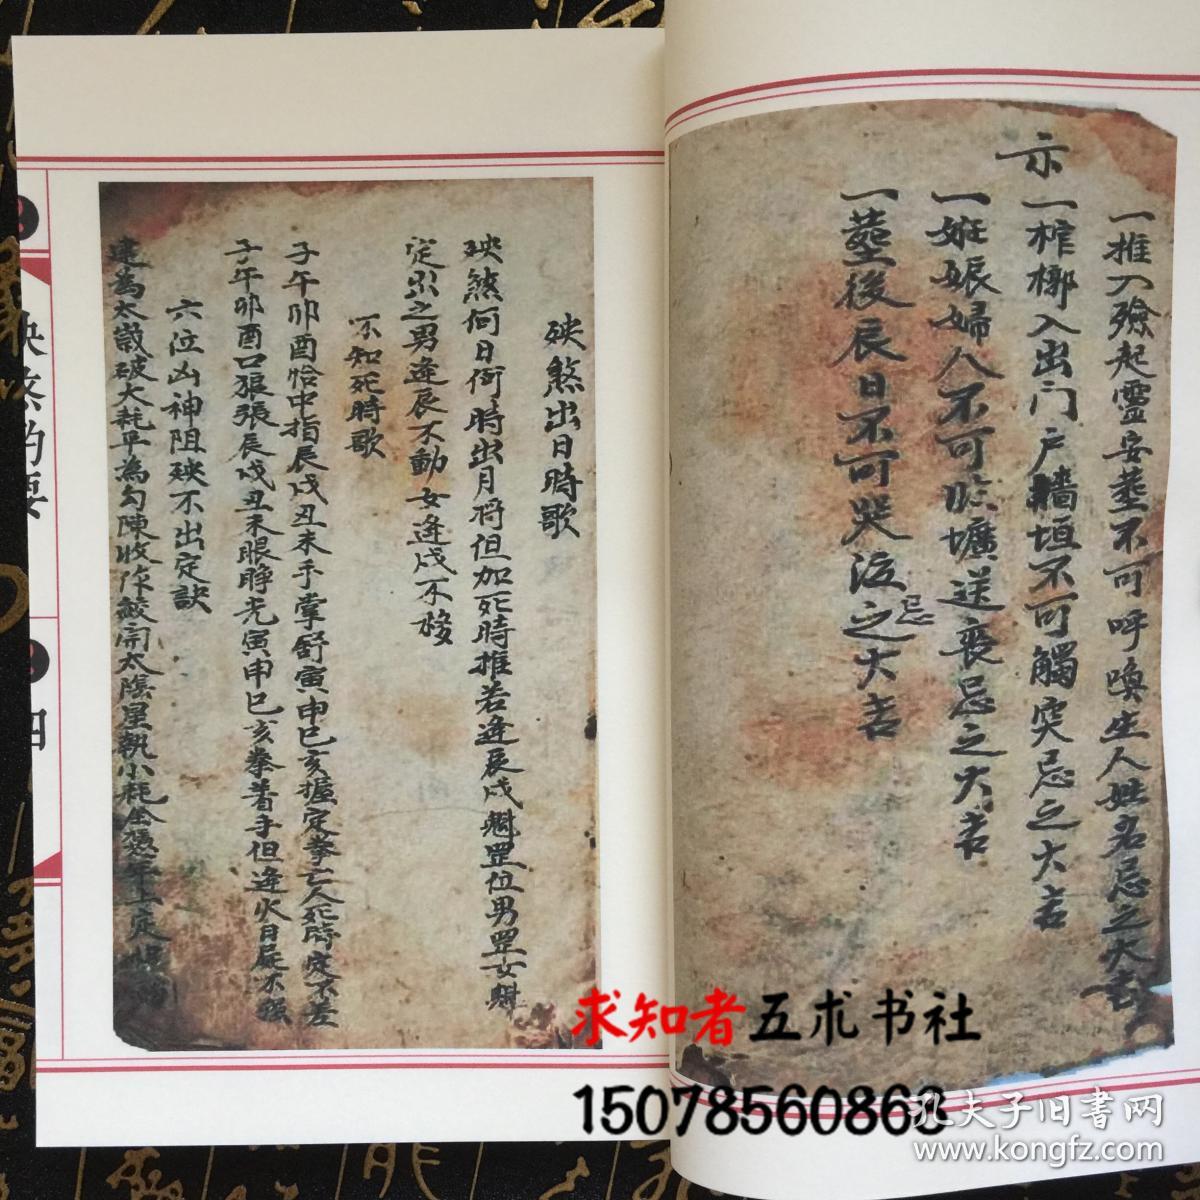 示
一推入殮起靈安塟不可呼喚生人姓名忌之大吉
一棺槨入出门户墻垣不可觸突忌之大吉
一娠婦人不可臨壙送喪忌之大吉
一塟後辰日不可哭泣忌之大吉
殃煞出日時歌
殃煞何日何時出月将但加死時推若逢辰戌魁罡位男罡女魁
定出之男逢辰不動女逢戌不移
不知死時歌
子午卯酉恰中指辰戌丑未手掌舒寅申巳亥握定拳亡人死時定不差
子午卯酉口張辰戌丑未眼睁光寅申巳亥拳着手但逢火日屍不
六位凶神阻殃不出定訣
建為太歲破大耗平為勾陳收作絞開太陰星執小耗全憑年上定
殃煞的要
四
求知者五术书社
15078560863
孔夫子旧书网
www.kongfz.com